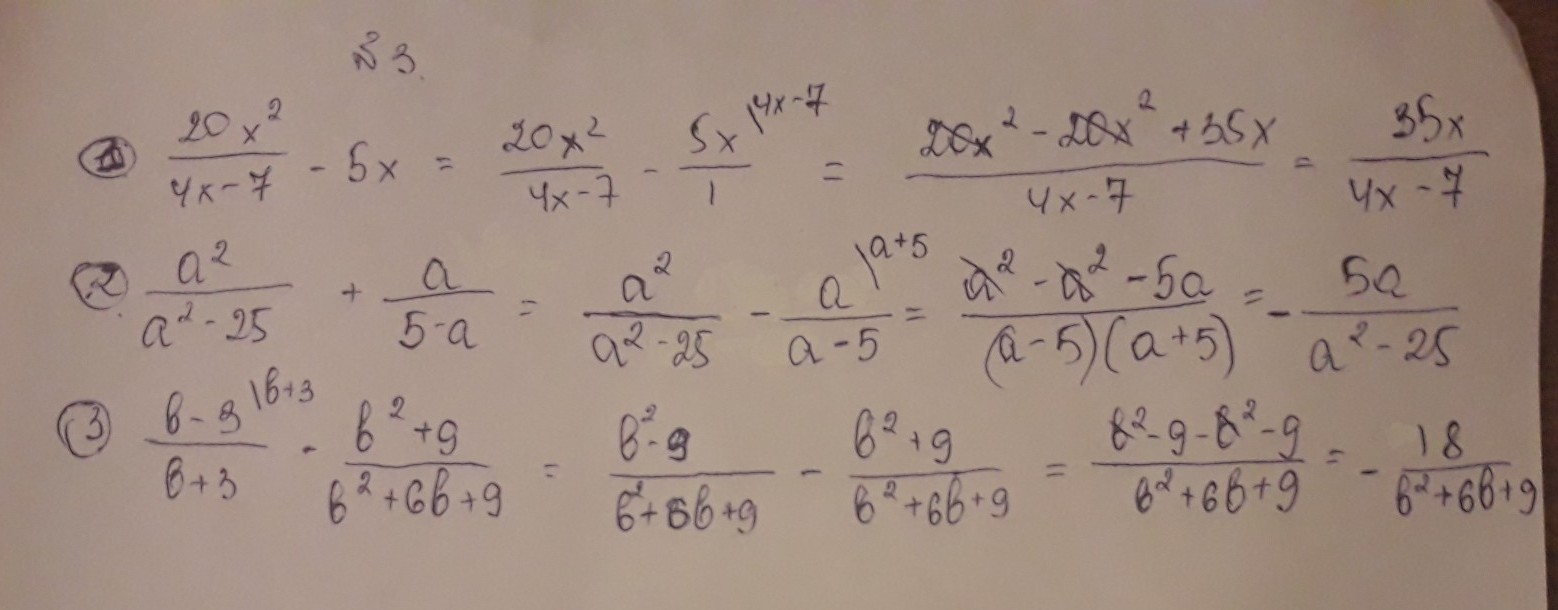 № 3.
① 20x²/(4x-7) - 5x = 20x²/(4x-7) - 5x/1 \4x-7 = (20x² - 20x² + 35x)/(4x-7) = 35x/(4x-7)
② a²/(a²-25) + a/(5-a) = a²/(a²-25) - a/(a-5) \a+5 = (a² - a² - 5a)/((a-5)(a+5)) = - 5a/(a²-25)
③ (в-3)/(в+3) \в+3 - (в²+9)/(в²+6в+9) = (в²-9)/(в²+6в+9) - (в²+9)/(в²+6в+9) = (в²-9-в²-9)/(в²+6в+9) = - 18/(в²+6в+9)